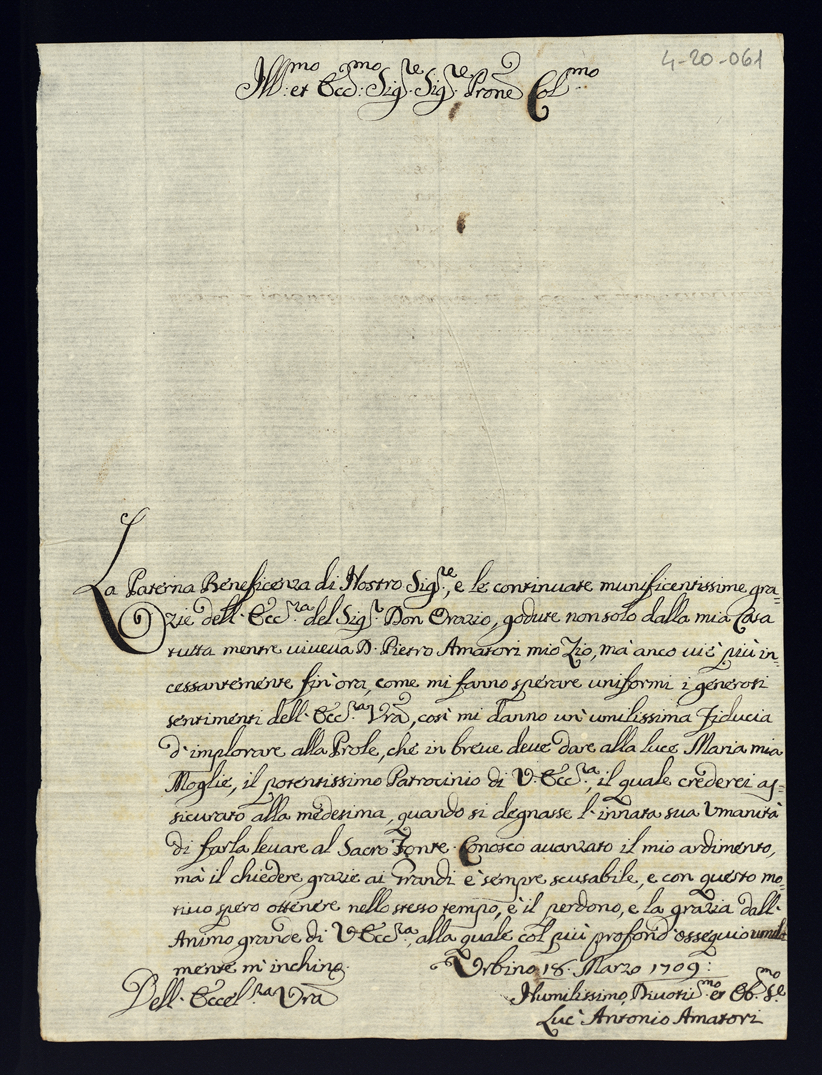 4-20-061
Ill:mo et Ecc:mo Sig:re Sig:re Prone Col:mo
La Paterna Beneficenza di Nostro Sig:re, e le continuate munificentissime gra=
zie dell' Ecc:ra del Sig:r Don Orazio, godute non solo dalla mia Casa
tutta mentre viveva D. Pietro Amatori mio Zio, mà anco vi è più in=
cessantemente fin'ora, come mi fanno sperare uniformi i generosi
sentimenti dell' Ecc:ra Vrã, così mi danno un' umilissima fiducia
d' implorare alla Prole, che in breve deve dare alla luce Maria mia
Moglie, il potentissimo Patrocinio di V. Ecc:ra, il quale crederei as=
sicurato alla medesima, quando si degnasse l' innata sua Umanità
di farla levare al Sacro Fonte. Conosco avanzato il mio ardimento,
mà il chiedere grazie ai Grandi è sempre scusabile, e con questo mo=
tivo spero ottenere nello stesso tempo, è il perdono, e la grazia dall'
Animo grande di V. Ecc:ra, alla quale col più profond' ossequio umil=
mente m' inchino.
Urbino 18. Marzo 1709:
Dell' Eccel:ra Vrã
Humilissimo, Divotis:mo et Ob:mo S:re
Luc' Antonio Amatori